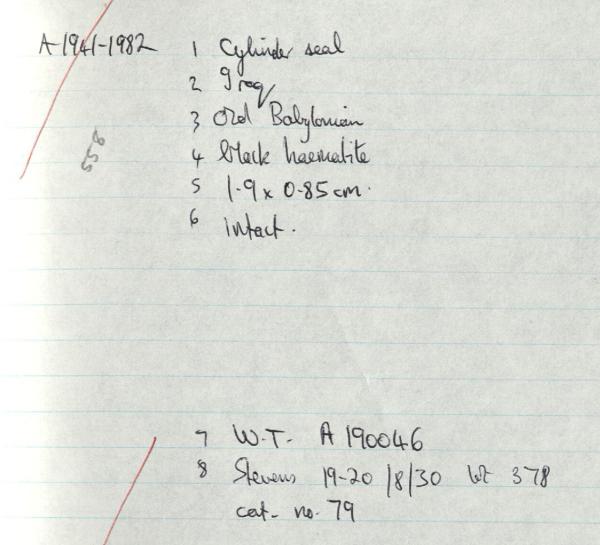 A-1941-1982 1 Cylinder seal
2 Iraq
3 Old Babylonian
4 black haematite
5 1.9 x 0.85 cm.
6 intact.
558
7 W.T. A 190046
8 Stevens 19-20/8/30 lot 378
cat. no. 79